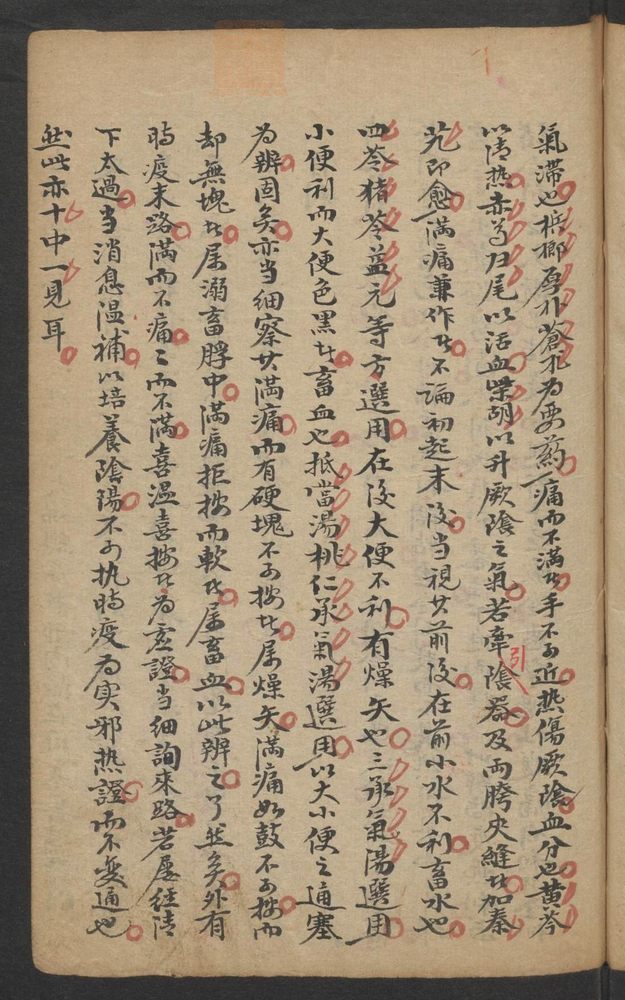 氣滯也檳榔厚朴蒼朮為要葯痛而不滿者手不可近熱傷厥陰血分也黄芩
以清熱赤芍歸尾以活血柴胡以升厥陰之氣若牽引陰器及両胯夾縫者加秦
艽即愈滿痛兼作者不論初起末後當視其前後在前小水不利畜水也
四苓猪苓益元等方選用在後大便不利有燥矢也三承氣湯選用
小便利而大便色黑者畜血也抵當湯桃仁承氣湯選用以大小便之通塞
為辨固矣亦当細察其滿痛而有硬塊不可按者属燥矢滿痛如鼓不可按而
却無塊者属溺畜脬中滿痛拒按而軟者属畜血以此辨之了然矣外有
時疫末路滿而不痛〻而不滿喜温喜按者為虛證当細詢來路若屡經清
下太過当消息温補以培養陰陽不可执時疫為实邪热證而不变通也
然此亦十中一見耳